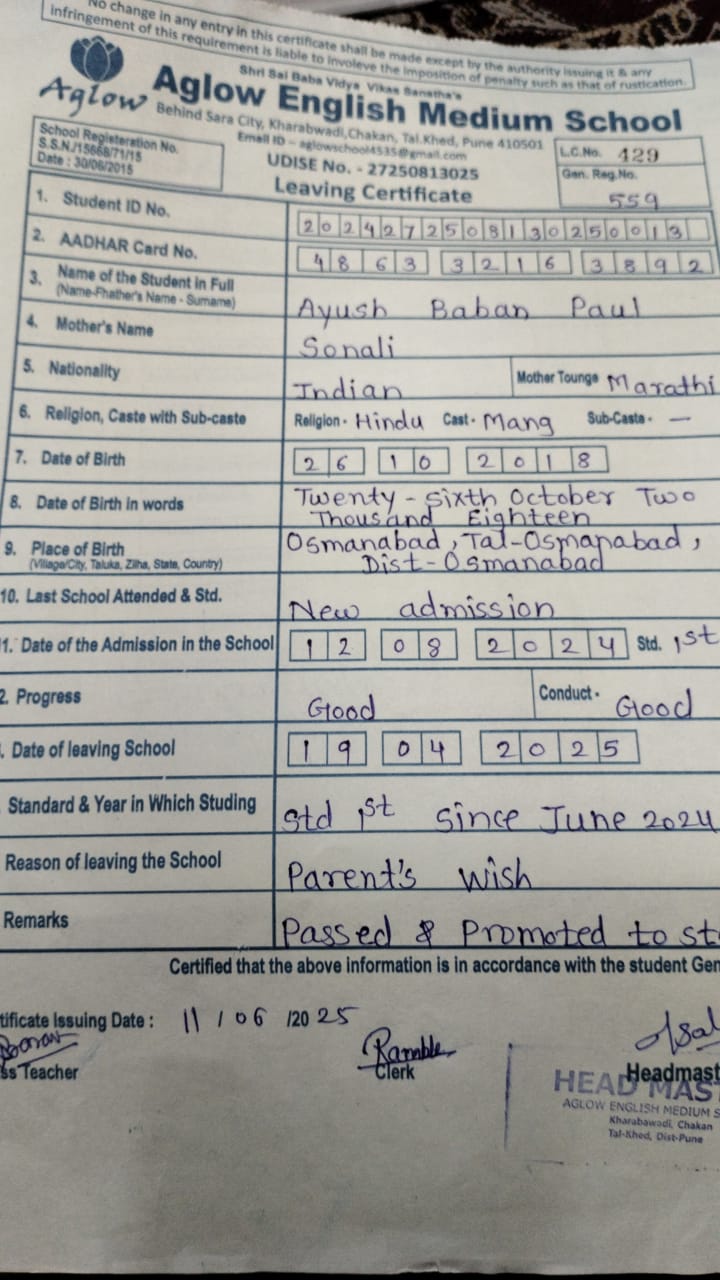 No change in any entry in this certificate shall be made except by the authority issuing it & any
infringement of this requirement is liable to involeve the imposition of penalty such as that of rustication.
Shri Sai Baba Vidya Vikas Sanstha's
Aglow
Aglow English Medium School
Behind Sara City, Kharabwadi,Chakan, Tal.Khed, Pune 410501
Email ID - aglowschool4535@gmail.com
School Registeration No.
S.S.N./15668/71/15
Date : 30/06/2015
UDISE No. - 27250813025
L.C.No. 429
Gen. Reg.No.
559
Leaving Certificate
1. Student ID No. 2024272508130250013
2. AADHAR Card No. 4863 3216 3892
3. Name of the Student in Full
(Name-Fhather's Name - Surname)
Ayush Baban Paul
4. Mother's Name
Sonali
5. Nationality
Indian
Mother Tounge Marathi
6. Religion, Caste with Sub-caste Religion - Hindu Cast - Mang Sub-Caste - —
7. Date of Birth 26 10 2018
8. Date of Birth in words Twenty - Sixth October Two
Thousand Eighteen
9. Place of Birth
(Village/City, Taluka, Zilha, State, Country)
Osmanabad, Tal-Osmanabad,
Dist-Osmanabad
10. Last School Attended & Std.
New admission
1. Date of the Admission in the School 12 08 2024 Std. 1st
2. Progress
Good
Conduct - Good
. Date of leaving School 19 04 2025
Standard & Year in Which Studing
Std 1st Since June 2024
Reason of leaving the School
Parent's Wish
Remarks
Passed & Promoted to st
Certified that the above information is in accordance with the student Gen
tificate Issuing Date : 11 / 06 /2025
ss Teacher
Clerk
Headmast
HEAD MAST
AGLOW ENGLISH MEDIUM S
Kharabawadi, Chakan
Tal-Khed, Dist-Pune